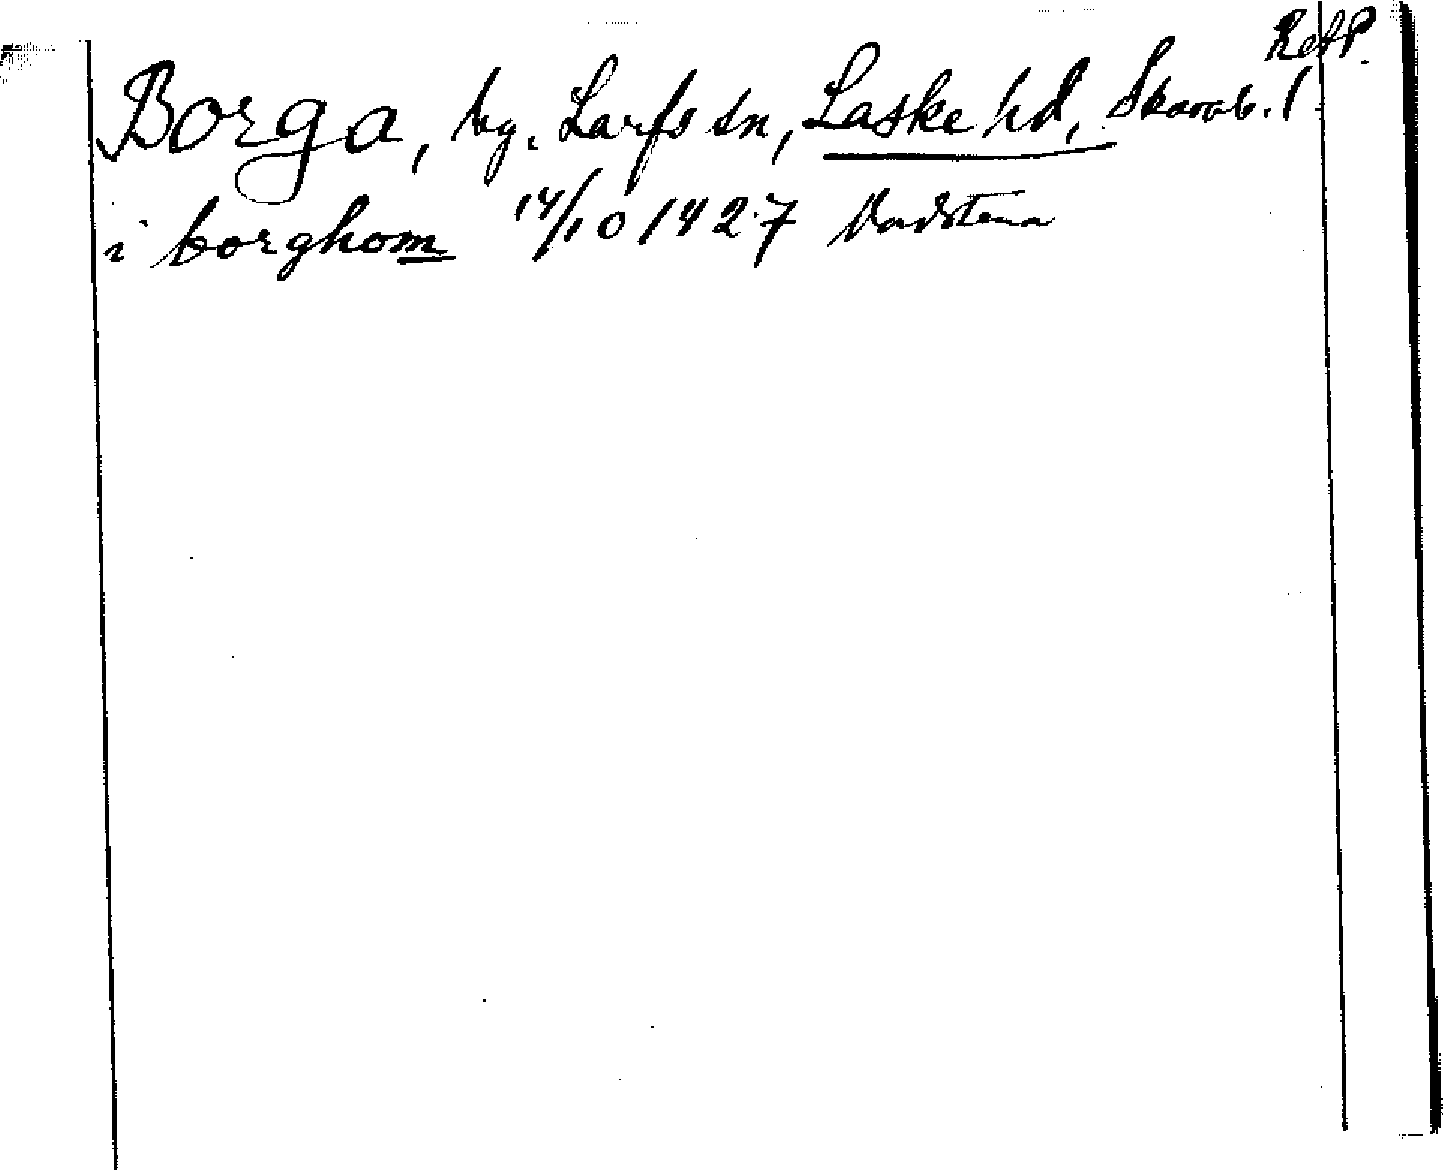 RefP.
Borga, by, Larfs sn, Laske hd, Skarab. l.
i borghom 14/10 1427 Vadstena